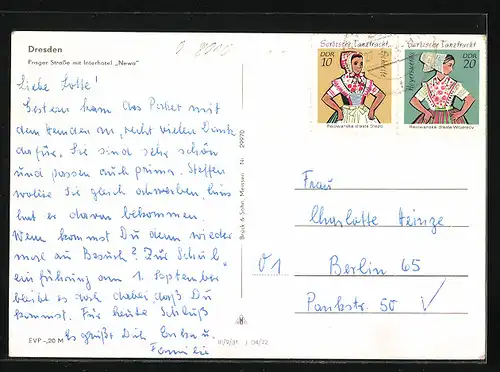 Dresden
Prager Straße mit Interhotel „Newa“
Liebe Lotte!
Gestern kam das Paket mit
den Hemden an, recht vielen Dank
dafür, Sie sind sehr schön
und passen auch prima. Steffen
wollte Sie gleich
hat er davon bekommen.
Wann kommst Du denn wieder
mal zu Besuch? Zur Schul„
einführung am 1. September
bleibt es doch dabei daß Du
kommst. Für heute Schluß
Es grüßt Dich Erika u.
Familie
EVP -,20 M
Brück & Sohn, Meissen Nr. 29970
III/9/31 J 04/72
Sorbische Tanztracht
DDR
10
Sorbische Tanztracht
Hoyerswerda
DDR
20
Frau
Charlotte Heinze
Berlin 65
Pankstr. 50